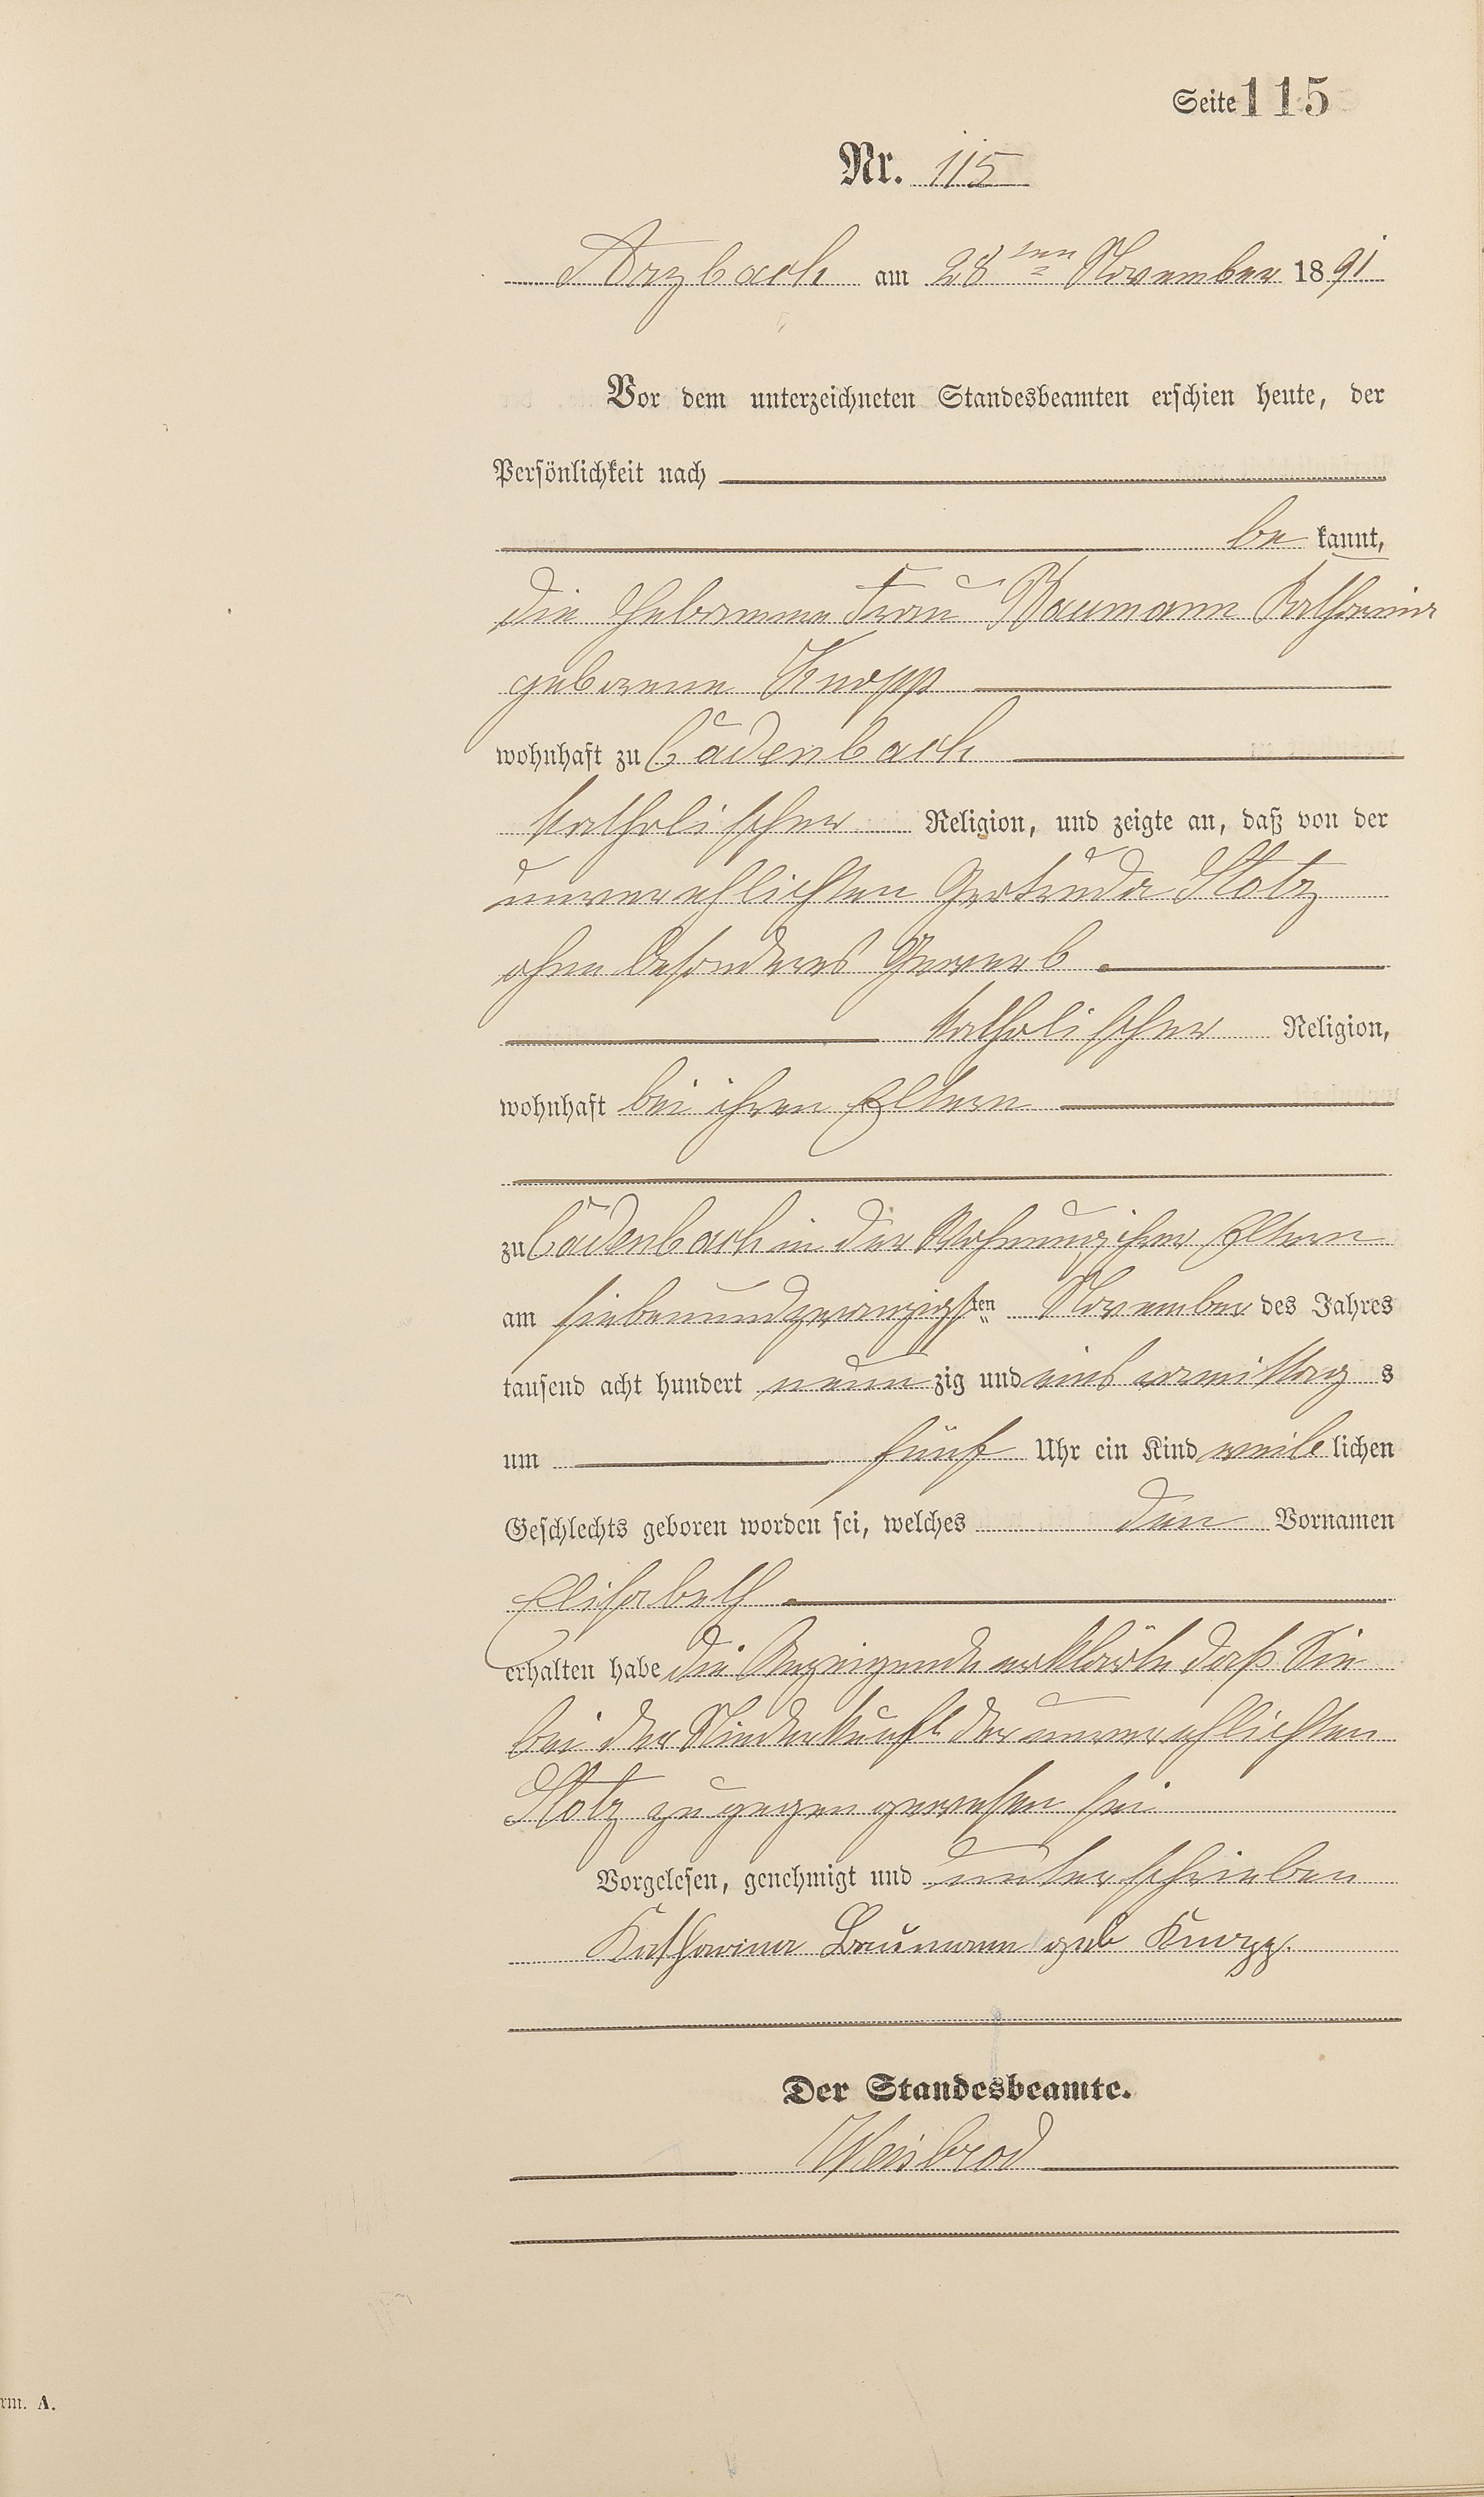 Seite 115
Nr. 115
Arzbach am 28ten November 1891
Vor dem unterzeichneten Standesbeamten erschien heute, der
Persönlichkeit nach
be kannt,
die Hebamme Frau Baumann Katharina
geborene Knopp
wohnhaft zu Cadenbach
katholischer Religion, und zeigte an, daß von der
unverehlichten Gertruda Stotz
ohne besonderes Gewerb
katholischer Religion,
wohnhaft bei ihren Eltern
zu Cadenbach in der Wohnung ihrer Eltern
am siebenundzwanzigsten November des Jahres
tausend acht hundert neunzig und eins vormittags
um fünf Uhr ein Kind weiblichen
Geschlechts geboren worden sei, welches den Vornamen
Elisabeth
erhalten habe die Anzeigende erklärte daß Sie
bei der Niederkunft der unverehlichten
Stotz zugegen gewesen sei
Vorgelesen, genehmigt und unterschrieben
Katharina Baumann geb Knopp.
Der Standesbeamte.
Weisbrod
rm. A.